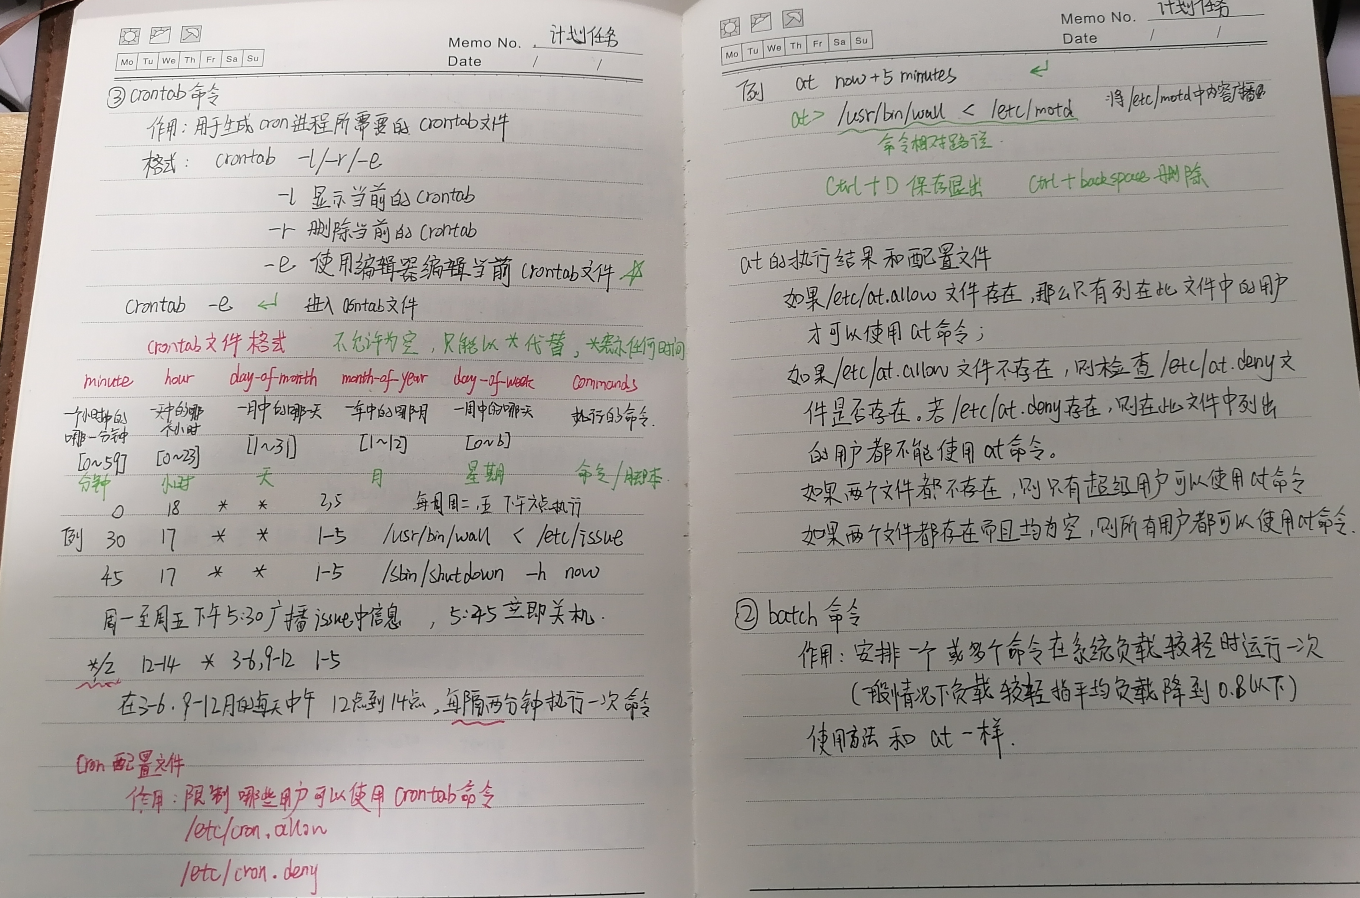 Memo No. 计划任务
Mo Tu We Th Fr Sa Su
Date / /
③ crontab 命令
作用：用于生成cron进程所需要的crontab文件
格式： crontab -l/-r/-e
-l 显示当前的crontab
-r 删除当前的crontab
-e 使用编辑器编辑当前crontab文件 ☆
crontab -e ↵ 进入contab文件
crontab文件格式 不允许为空，只能以*代替，*表示任何时间
minute hour day-of-month month-of-year day-of-week commands
一个小时中的哪一分钟 一天中的哪个小时 一月中的哪天 一年中的哪月 一周中的哪天 执行的命令.
[0~59] [0~23] [1~31] [1~12] [0~6]
分钟 小时 天 月 星期 命令/脚本
0 18 * * 2,5 每周周二,五下午六点执行
例 30 17 * * 1-5 /usr/bin/wall < /etc/issue
45 17 * * 1-5 /sbin/shutdown -h now
周一至周五下午5:30广播issue中信息 ，5:45立即关机.
*/2 12-14 * 3-6,9-12 1-5
在3-6.9-12月的每天中午 12点到14点，每隔两分钟执行一次命令
Cron 配置文件
作用：限制哪些用户可以使用crontab命令
/etc/cron.allow
/etc/cron.deny
Memo No. 计划任务
Mo Tu We Th Fr Sa Su
Date / /
例 at now+5 minutes ↵
at> /usr/bin/wall < /etc/motd 将/etc/motd中内容广播
命令相对路径.
Ctrl+D 保存退出 Ctrl+backspace 删除
at的执行结果和配置文件
如果/etc/at.allow文件存在,那么只有列在此文件中的用户
才可以使用at命令；
如果/etc/at.allow文件不存在，则检查/etc/at.deny文
件是否存在。若/etc/at.deny存在，则在此文件中列出
的用户都不能使用at命令。
如果两个文件都不存在，则只有超级用户可以使用at命令
如果两个文件都存在而且均为空,则所有用户都可以使用at命令.
② batch 命令
作用：安排一个或多个命令在系统负载较轻时运行一次
（一般情况下负载较轻指平均负载降到0.8以下）
使用方法和 at 一样.